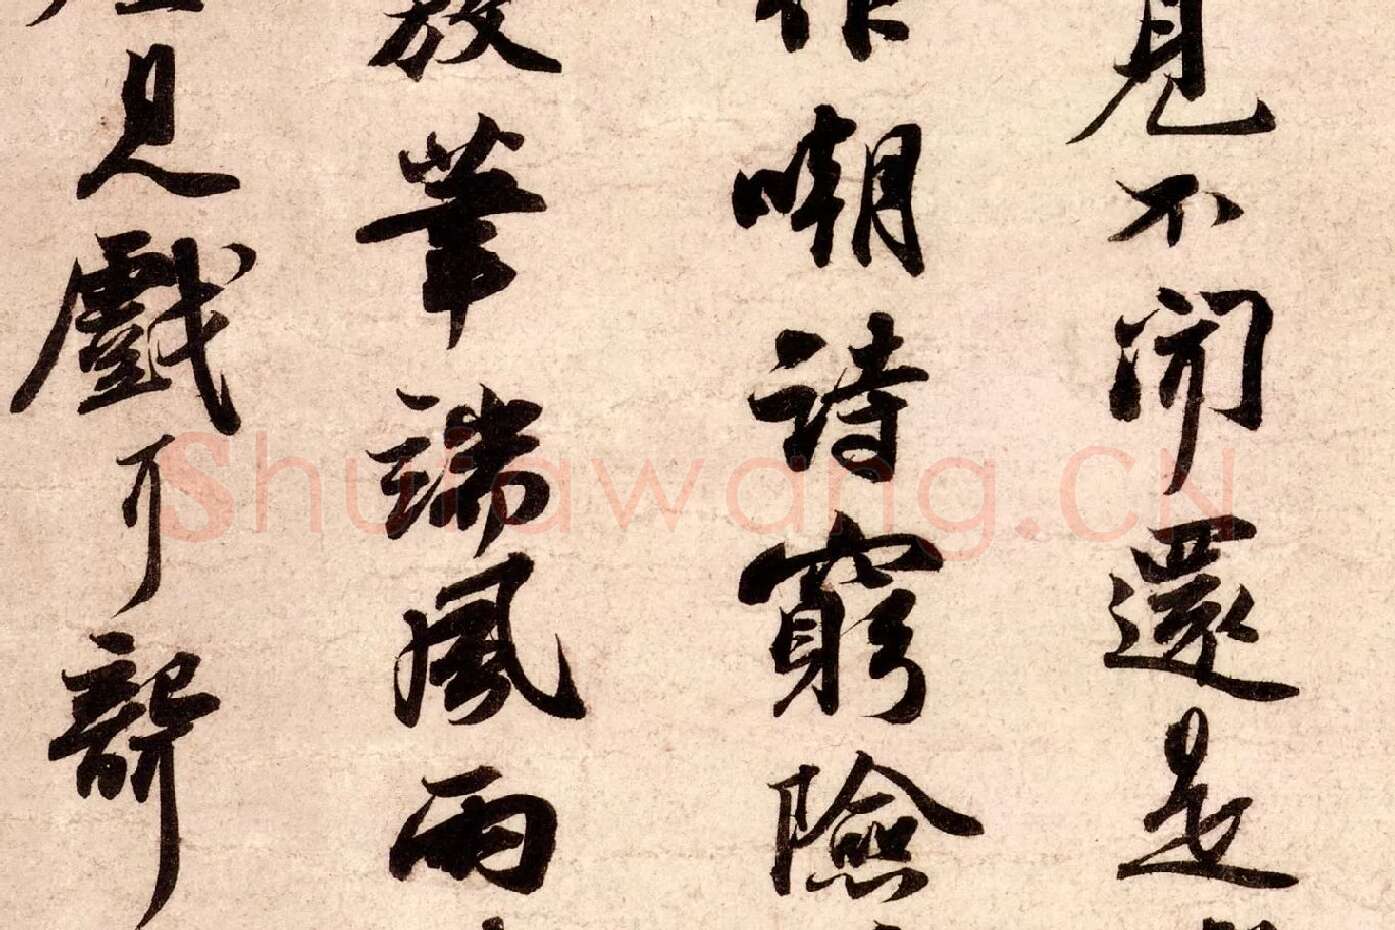 見不聞還是
作嘲詩窮險
放筆端風雨
見戲可
Shufawang.CN